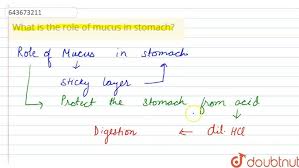 643673211
What is the role of mucus in stomach?
Role of Mucus in stomach
sticky layer
Protect the stomach from acid
Digestion ← dil. HCl
doubtnut